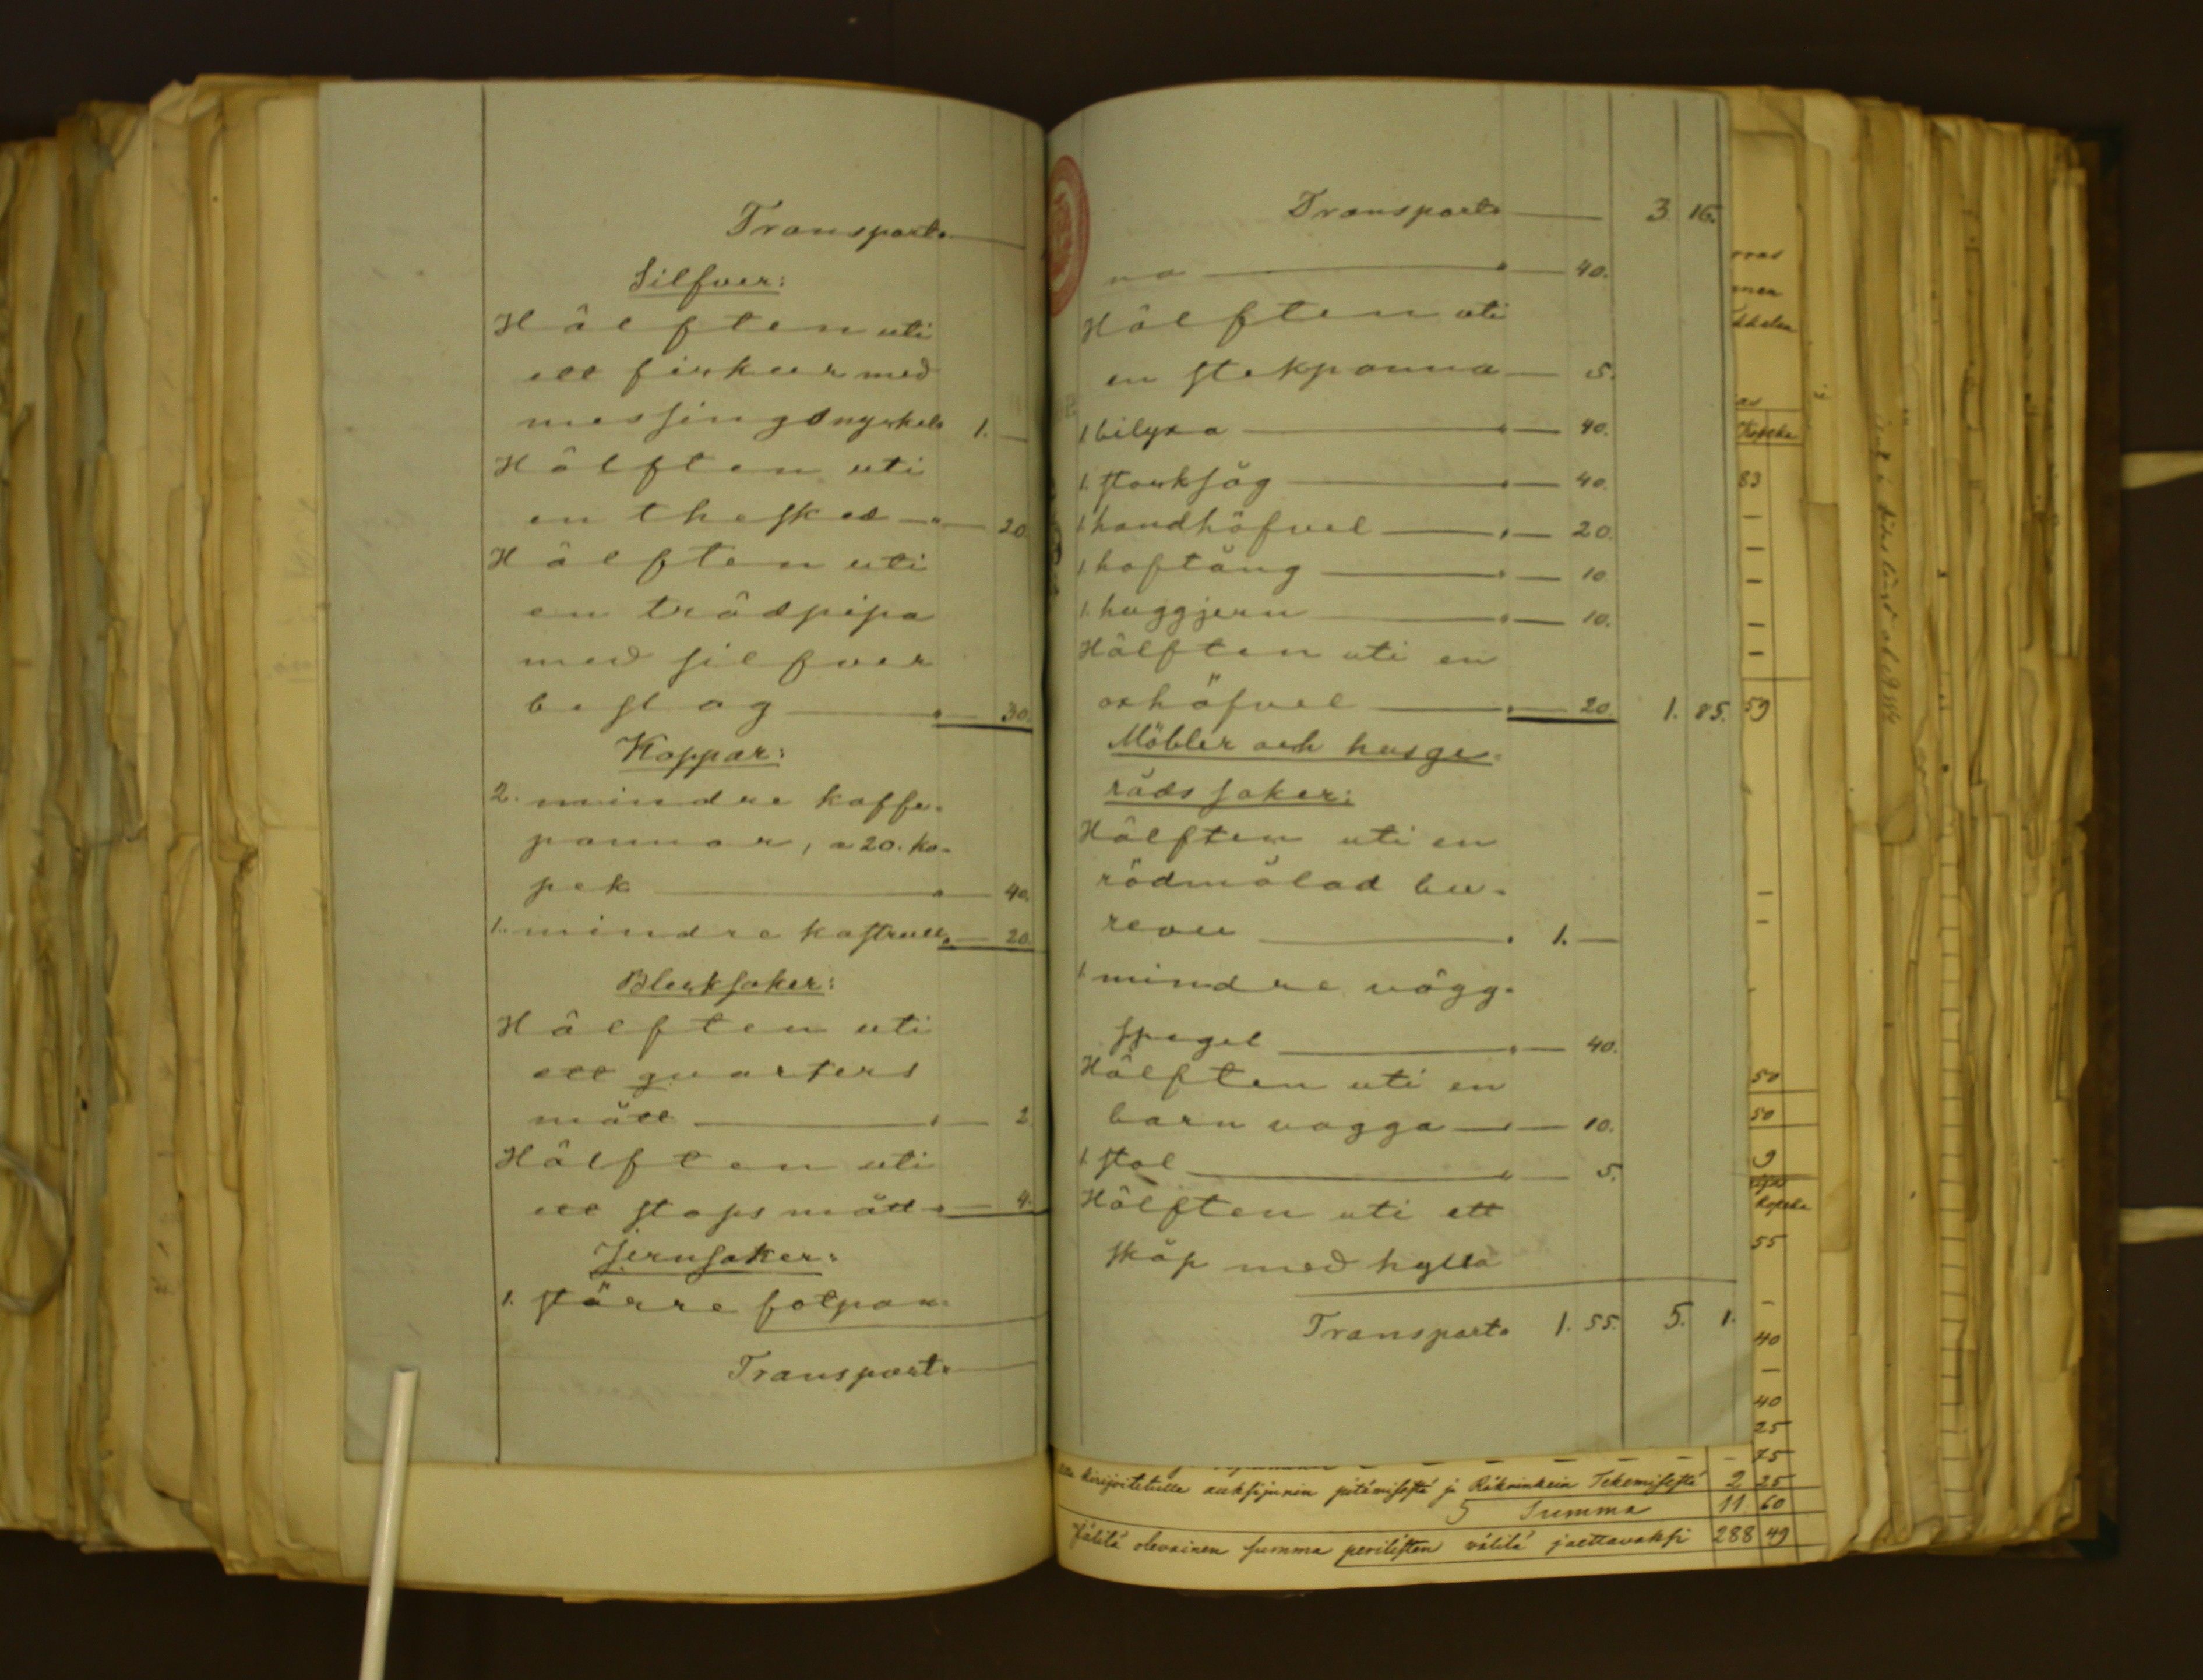 Transport.
Silfver:
Hälften uti
ett fickur med
messingsnyckel 1. —
Hälften uti
en thesked — " — 20
Hälften uti
en trädpipa
med silfver
beslag — " — 30.
Koppar:
2. mindre kaffe-
pannor, a 20. ko-
pek — " — 40.
1. mindre kastrull " — 20.
Blecksaker:
Hälften uti
ett qvarters
mått — " — 2.
Hälften uti
ett stops mått " — 4.
Jernsaker:
1. större fotpan-
Transport.
Transport — 3 16.
na — " — 40.
Hälften uti
en stekpanna — 5.
1 bilyxa — " — 40.
1. stocksåg — " — 40.
1 handhöfvel — " — 20.
1 hoftång — " — 10.
1. huggjern — " — 10.
Hälften uti en
oxhöfvel — " — 20. 1. 85.
Möbler och husge-
råds saker:
Hälften uti en
rödmålad bu-
reau — " 1. —
1 mindre vägg-
spegel — " — 40.
Hälften uti en
barn vagga — " — 10.
1 stol — " — 5.
Hälften uti ett
skåp med hylla
Transport. 1. 55. 5. 1.
Kopeka
83
59
50
50
9
Kopeka
55
40
40
25
75
kirjoitetulle auksijunin pitämisestä ja Räkninkein Tekemisestä 2 25
5 Summa 11 60
Jälilä olevainen summa perilisten välilä jaettavaksi 288 49